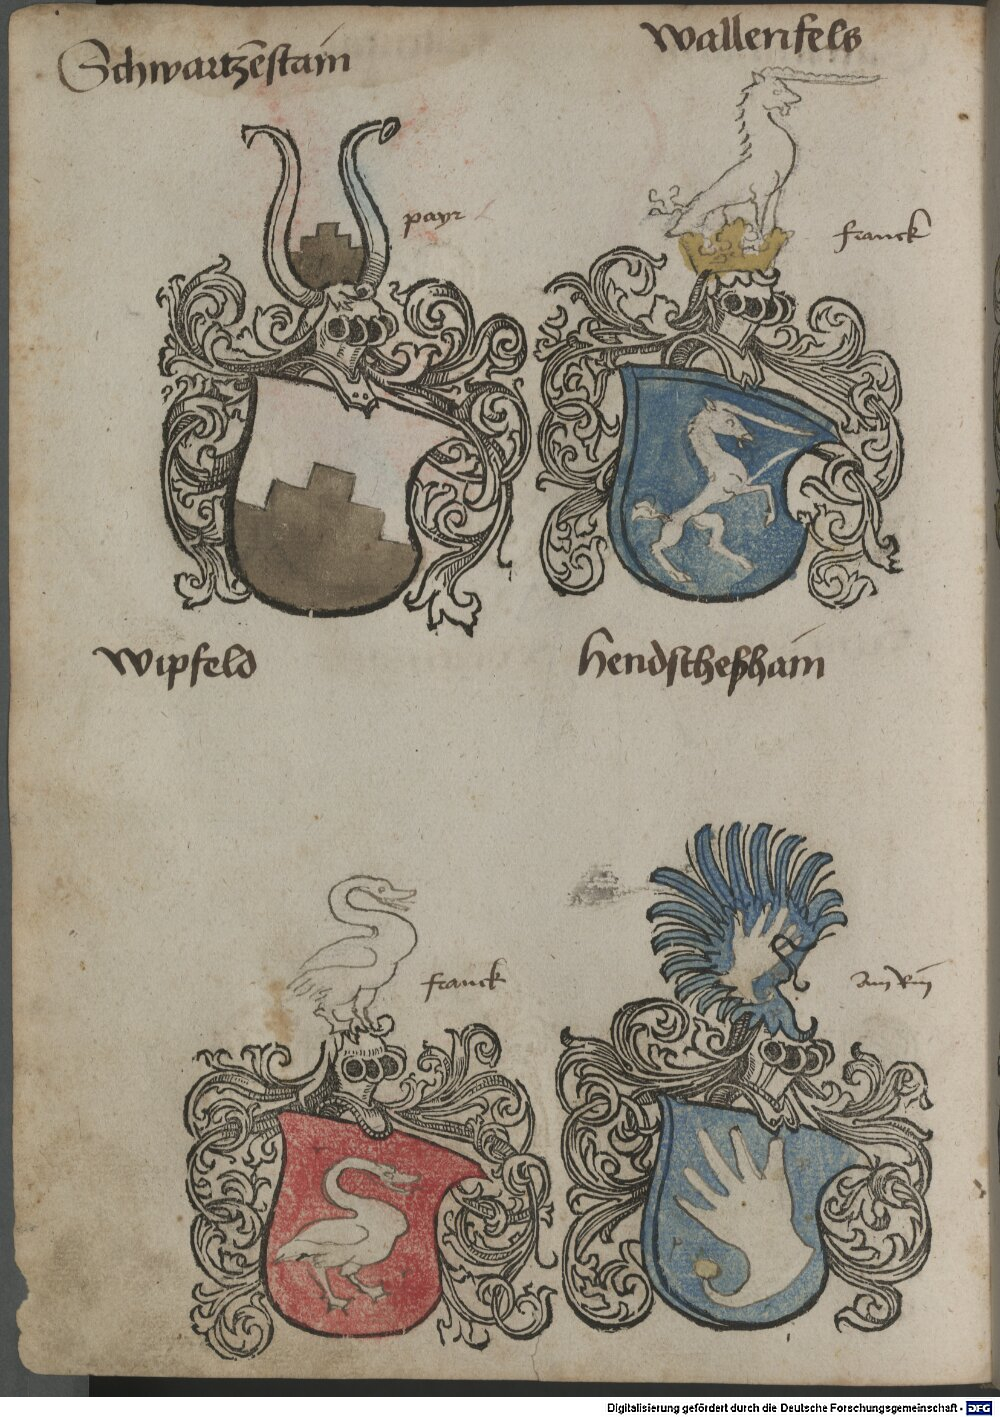 Schwartzēstain
Wallenfels
payr
franck
Wipfeld
Hendscheßhaim
franck
am Rin
Digitalisierung gefördert durch die Deutsche Forschungsgemeinschaft - DFG